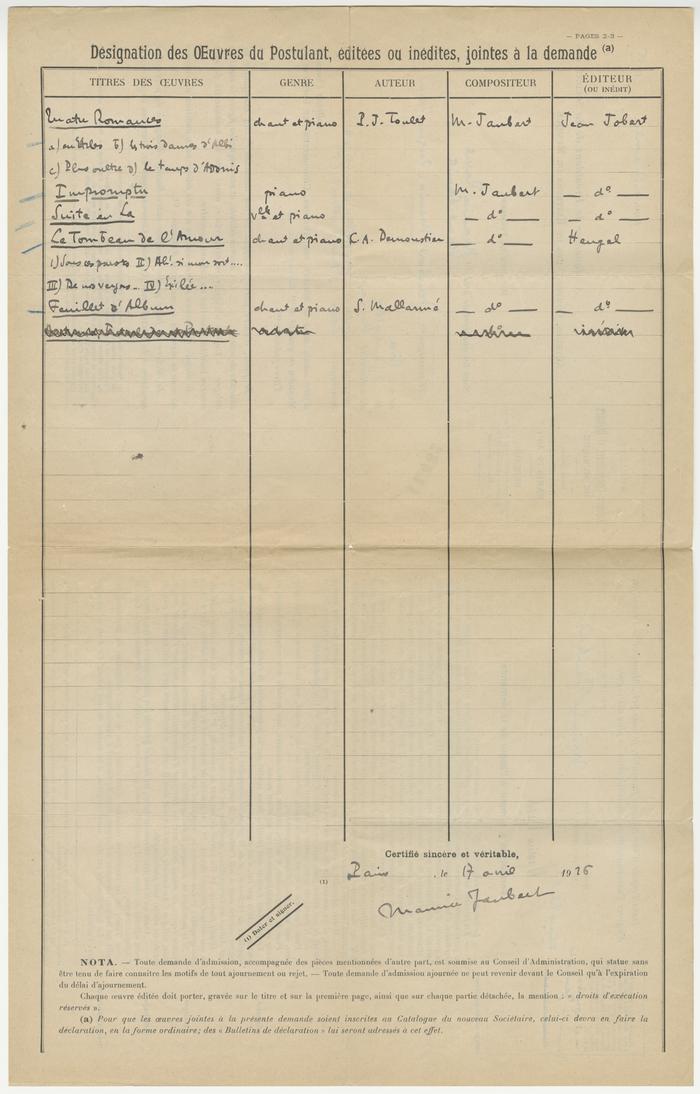 — PAGES 2-3 —
Désignation des Œuvres du Postulant, éditées ou inédites, jointes à la demande (a)
TITRES DES ŒUVRES GENRE AUTEUR COMPOSITEUR ÉDITEUR
(OU INÉDIT)
Quatre Romances chant et piano P. J. Toulet M. Jaubert Jean Jobert
a) en Arles b) les trois dames d'Albi
c) Plus oultre d) le temps d'Adonis
Impromptu piano M. Jaubert — d° —
Suite en La Vlle et piano — d° — — d° —
Le Tombeau de l'Amour chant et piano C. A. Demoustier — d° — Heugel
I) Sous ces II) Ah! si mon sort....
III) De nos IV) Exilée....
Feuillet d'Album chant et piano S. Mallarmé — d° — — d° —
Certifié sincère et véritable,
(1) Paris, le 17 avril 1926
Maurice Jaubert
(1) Dater et signer.
NOTA. — Toute demande d'admission, accompagnée des pièces mentionnées d'autre part, est soumise au Conseil d'Administration, qui statue sans
être tenu de faire connaître les motifs de tout ajournement ou rejet. — Toute demande d'admission ajournée ne peut revenir devant le Conseil qu'à l'expiration
du délai d'ajournement.
Chaque œuvre éditée doit porter, gravée sur le titre et sur la première page, ainsi que sur chaque partie détachée, la mention : « droits d'exécution
réservés ».
(a) Pour que les œuvres jointes à la présente demande soient inscrites au Catalogue du nouveau Sociétaire, celui-ci devra en faire la
déclaration, en la forme ordinaire; des « Bulletins de déclaration » lui seront adressés à cet effet.